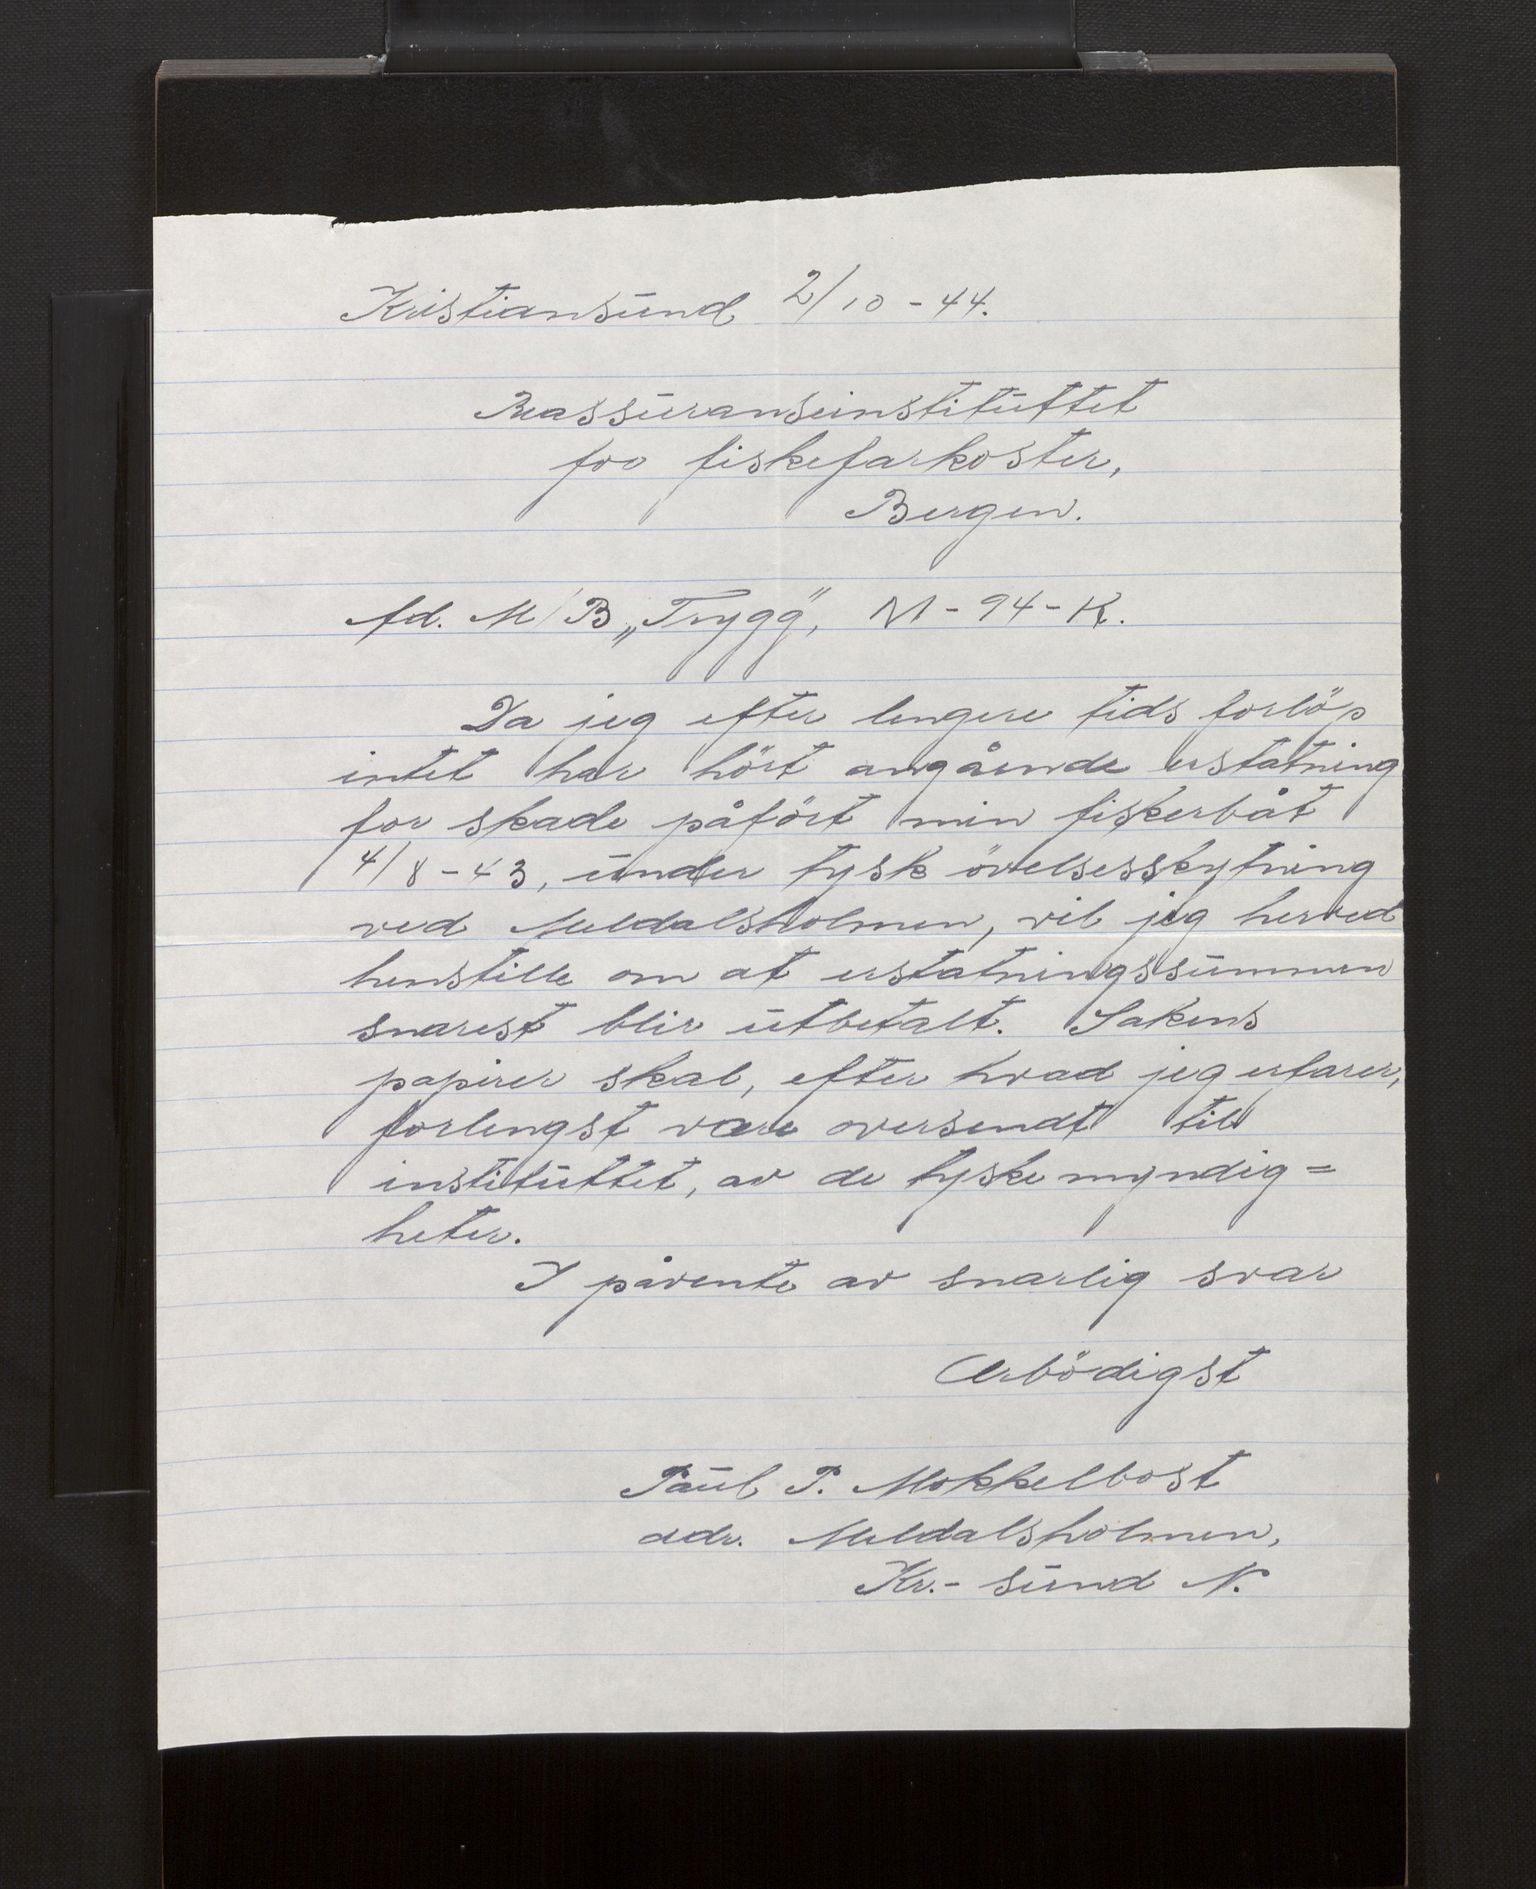 Kristiansund 2/10 - 44.
Reassuranseinstituttet
for fiskefarkoster,
Bergen.
Ad. M/B „Trygg", M - 94 - K.
Da jeg efter lengere tids forlöp
intet har hört angående erstatning
for skade påfört min fiskerbåt
4/8 - 43, under tysk övelsesskytning
ved Meldalsholmen, vil jeg herved
henstille om at erstatningssummen
snarest blir utbetalt. Sakens
papirer skal, efter hvad jeg erfarer,
forlengst være oversendt til
instituttet, av de tyske myndig=
heter.
I påvente av snarlig svar
Ærbödigst
Paul P. Mokkelbost
adr. Meldalsholmen,
Kr.- sund N.